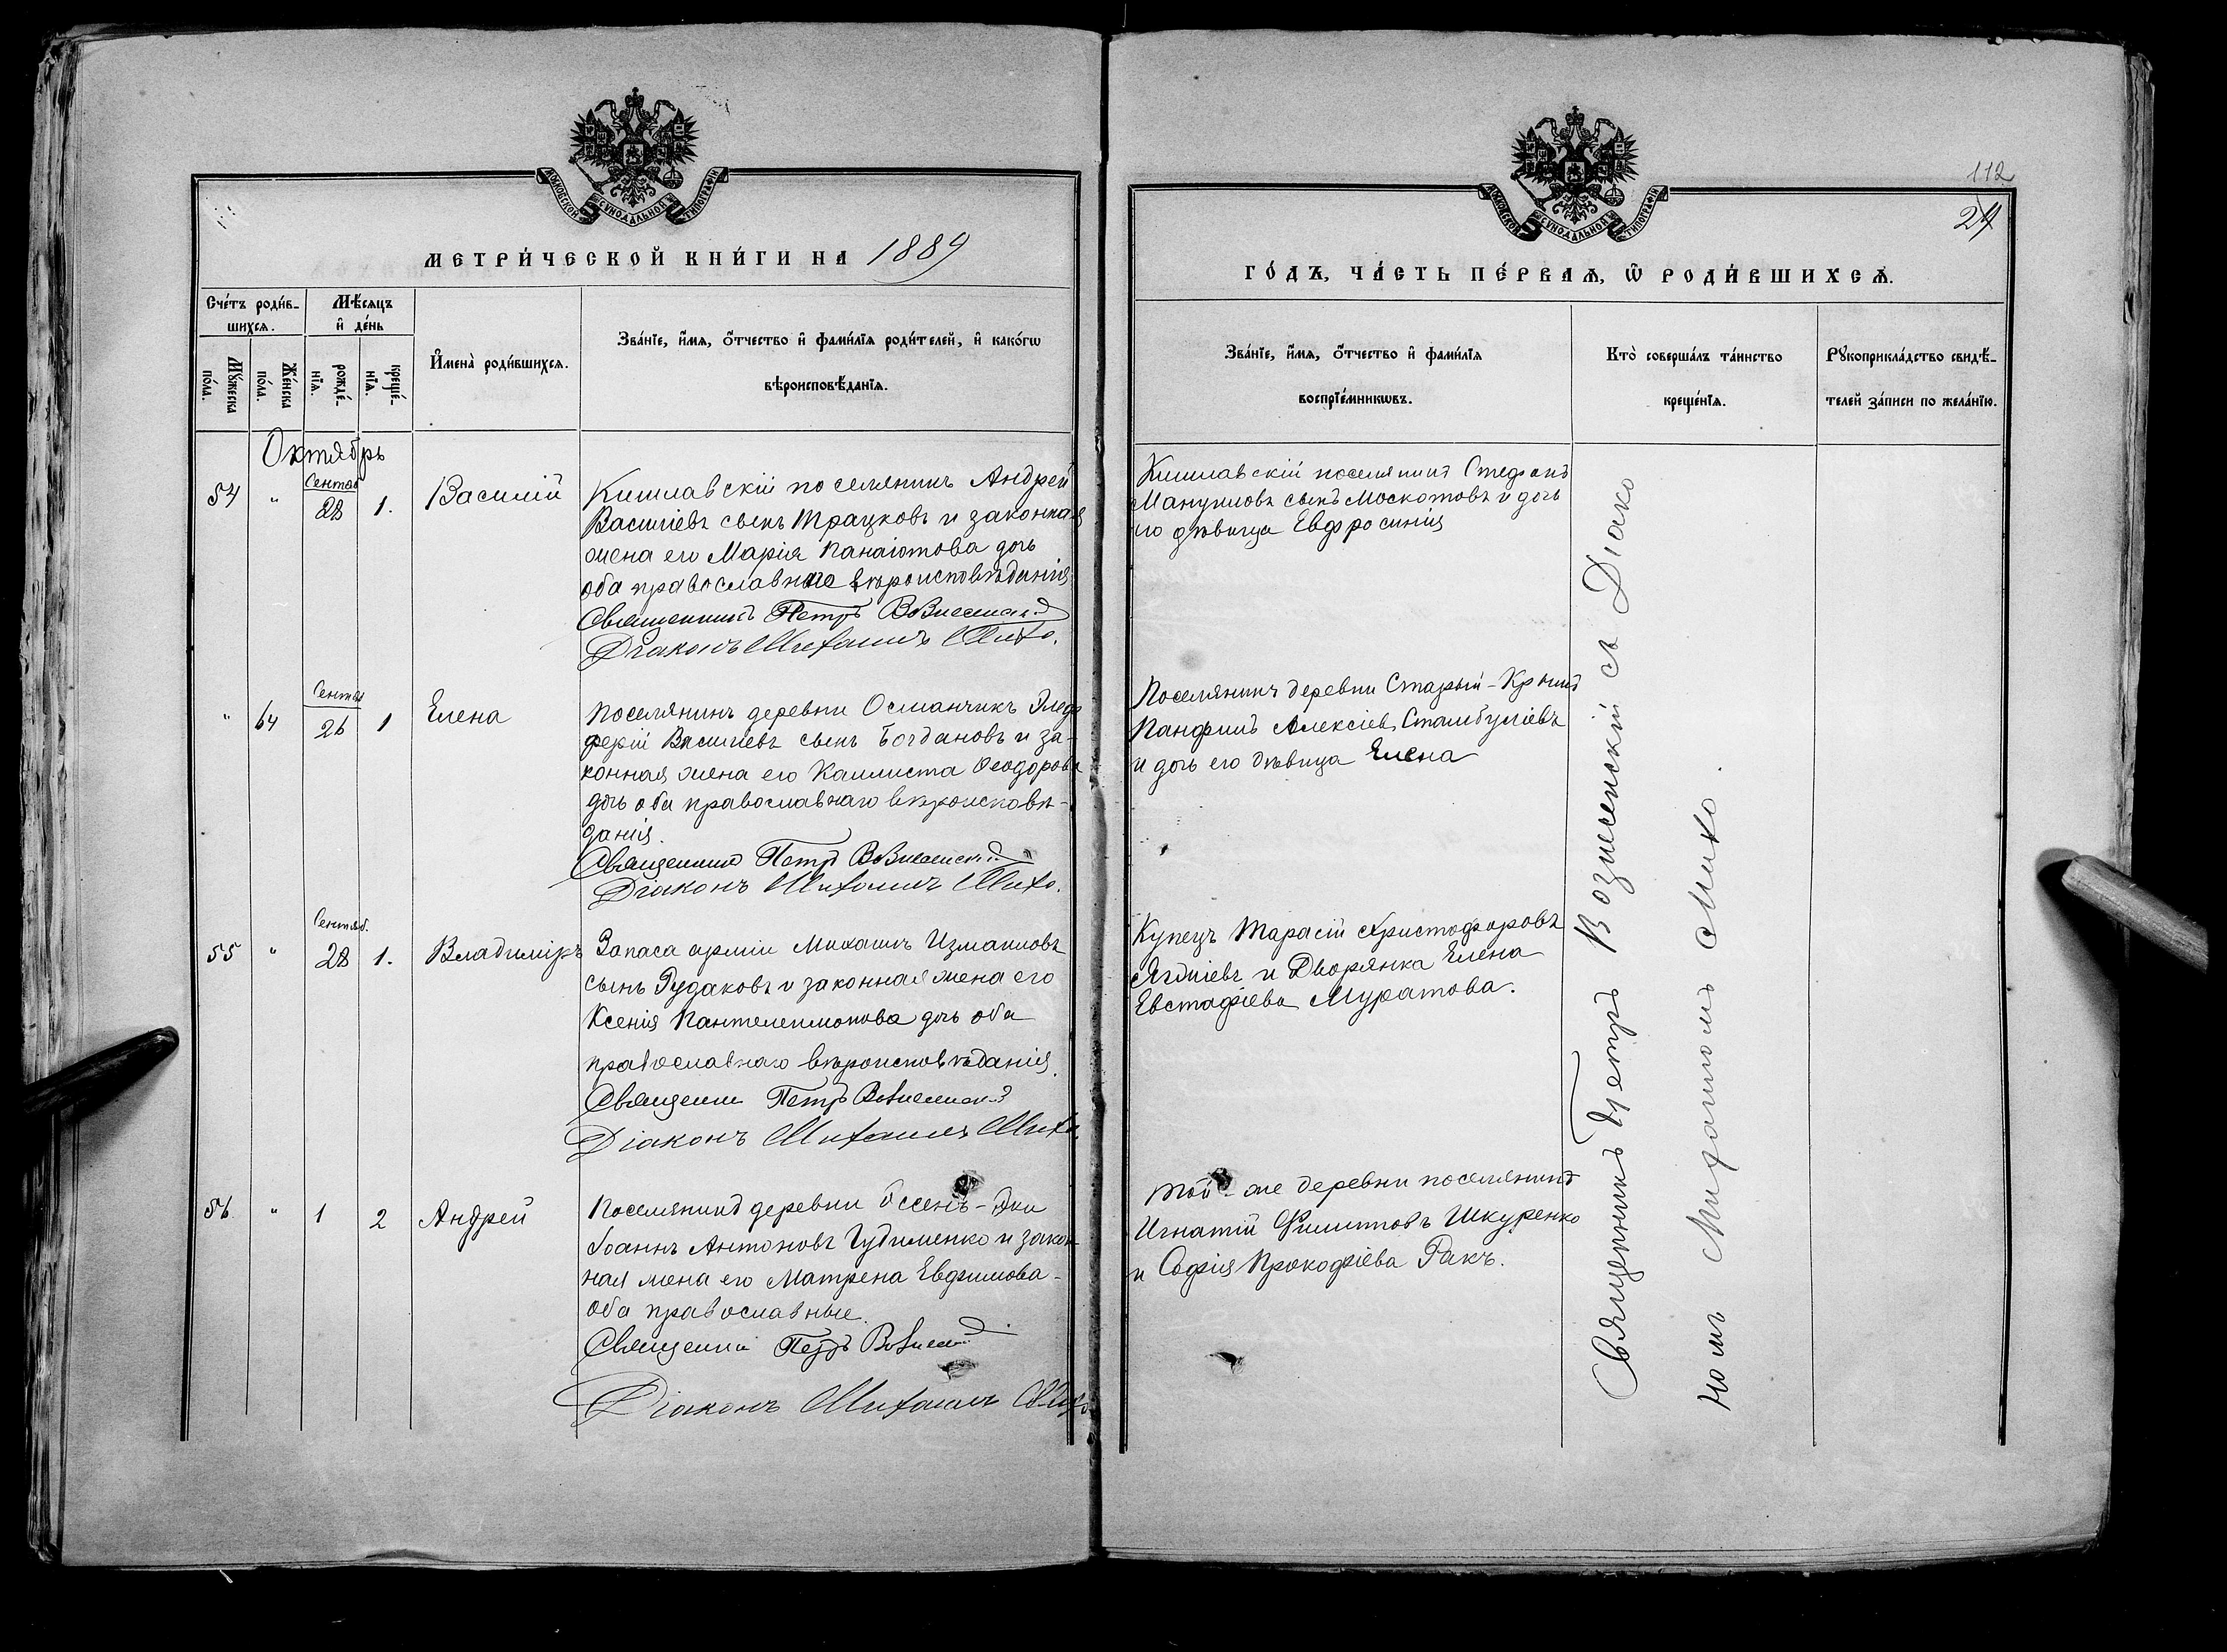 МОСКОВСКОЙ СѴНОДАЛЬНОЙ ТИПОГРАФІИ
МЕТРИ́ЧЕСКОЙ КНИ́ГИ НА 1889
Сче́тъ роди́в-
шихсѧ.
Мѣ́сѧцъ
и҆ де́нь
Мꙋ́жеска
по́ла.
Же́нска
по́ла.
рожде́-
нїѧ.
креще́-
нїѧ.
И҆мена̀ роди́вшихсѧ.
Зва́нїе, и҆́мѧ, ѻ҆́тчество и҆ фами́лїѧ роди́телей, и҆ како́гѡ
вѣроисповѣ́данїѧ.
Октябрь
54 " Сентяб 28 1. Василій
Кишлавскій поселянинъ Андрей
Василіевъ сынъ Трацковъ и законная
жена его Марія Панаіотова дочь
оба православные вѣроисповѣданія
Священникъ Петръ Вознесенскій
Діаконъ Михаилъ Михо.
" 64 Сентяб 26 1 Елена
Поселянинъ деревни Османчикъ Элев
ферій Василіевъ сынъ Богдановъ и за-
конная жена его Каллиста Ѳеодорова
дочь оба православнаго вѣроисповѣ-
данія.
Священникъ Петръ Вознесенскій
Діаконъ Михаилъ Михо.
55 " Сентяб. 28 1. Владиміръ
Запаса арміи Михаилъ Измаиловъ
сынъ Рудаковъ и законная жена его
Ксенія Пантелеимонова дочь оба
православнаго вѣроисповѣданія.
Священни Петръ Вознесенскій
Діаконъ Михаилъ Михо.
56 " 1 2 Андрей
Поселянинъ деревни Оссенъ-Эки
Іоаннъ Антоновъ Гудименко и закон
ная жена его Матрена Евфимова-
оба православные.
Священни Петръ Вознесен
Діаконъ Михаилъ Михо
МОСКОВСКОЙ СѴНОДАЛЬНОЙ ТИПОГРАФІИ
112
24
ГО́ДЪ, ЧА́СТЬ ПЕ́РВАѦ, Ѡ҆ РОДИ́ВШИХСѦ.
Зва́нїе, и҆́мѧ, ѻ҆́тчество и҆ фами́лїѧ
воспрїе́мникѡвъ.
Кто̀ соверша́лъ та́инство
креще́нїѧ.
Рꙋкоприкла́дство свидѣ́-
телей за́писи по жела́нїю.
Кишлавскій поселянинъ Стефанъ
Мануиловъ сынъ Москотовъ и дочь
его дѣвица Евфросинія
Поселянинъ деревни Старый-Крымъ
Панфилъ Алексіев Стамбуліевъ
и дочь его дѣвица Елена
Купецъ Тарасій Христофоровъ
Ягдіевъ и Дворянка Елена
Евстафіева Муратова.
Той-же деревни поселянинъ
Игнатій Филипповъ Шкуренко
и Софія Прокофіева Ракъ.
Священникъ Петръ Вознесенскій съ Діако
номъ Михаиломъ Михо.